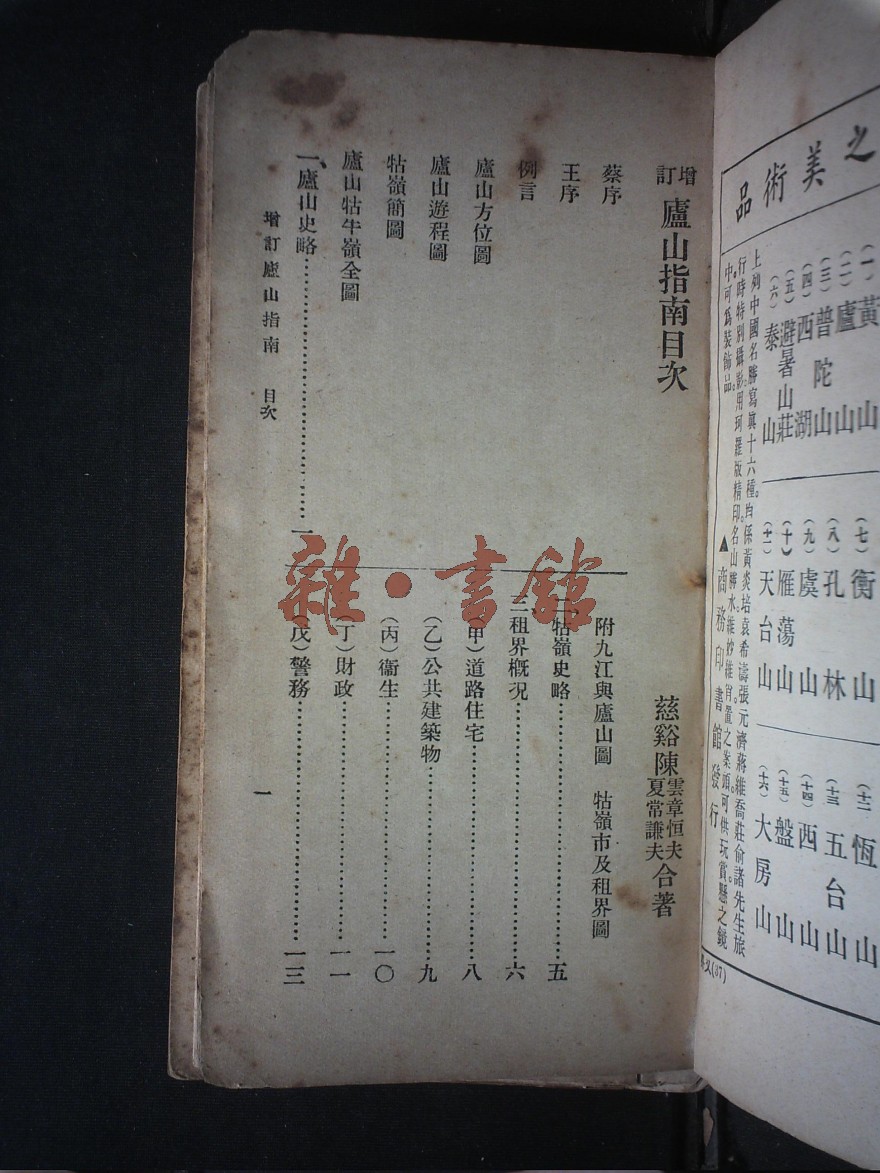 之美術品
(一)黃山
(二)廬山
(三)普陀山
(四)西湖
(五)避暑山莊
(六)泰山
(七)衡山
(八)孔林
(九)虞山
(十)雁蕩山
(十一)天台山
(十二)恆山
(十三)五台山
(十四)西山
(十五)盤山
(十六)大房山
上列中國名勝寫真十六種。均係黃炎培袁希濤。張元濟蔣維喬莊俞諸先生旅
行時特別攝影。用珂羅版精印。名山勝水。維妙維肖。置之案頭。可供玩賞。懸之鏡
中。可為裝飾品。
▲商務印書館發行
(37)
增訂廬山指南目次
慈谿陳雲章恒夫夏常謙夫合著
蔡序
王序
例言
廬山方位圖
廬山遊程圖
牯嶺簡圖
廬山牯牛嶺全圖
一、廬山史略……一
附九江與廬山圖 牯嶺市及租界圖
二、牯嶺史略……五
三租界概況……六
(甲)道路住宅……八
(乙)公共建築物……九
(丙)衞生……一〇
(丁)財政……一一
(戊)警務……一三
增訂廬山指南 目次
一
雜·書館